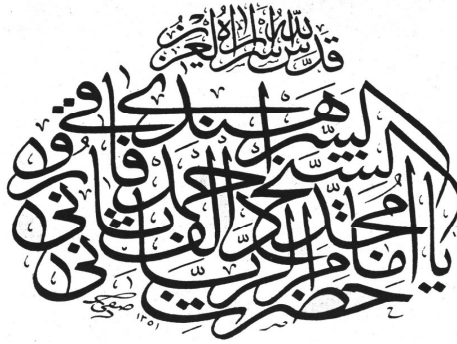 قدّس الله العزيز
يا حضرت امام رباني
مجدد الف ثاني
الشيخ احمد فاروقي
السرهندي
١٣٥١